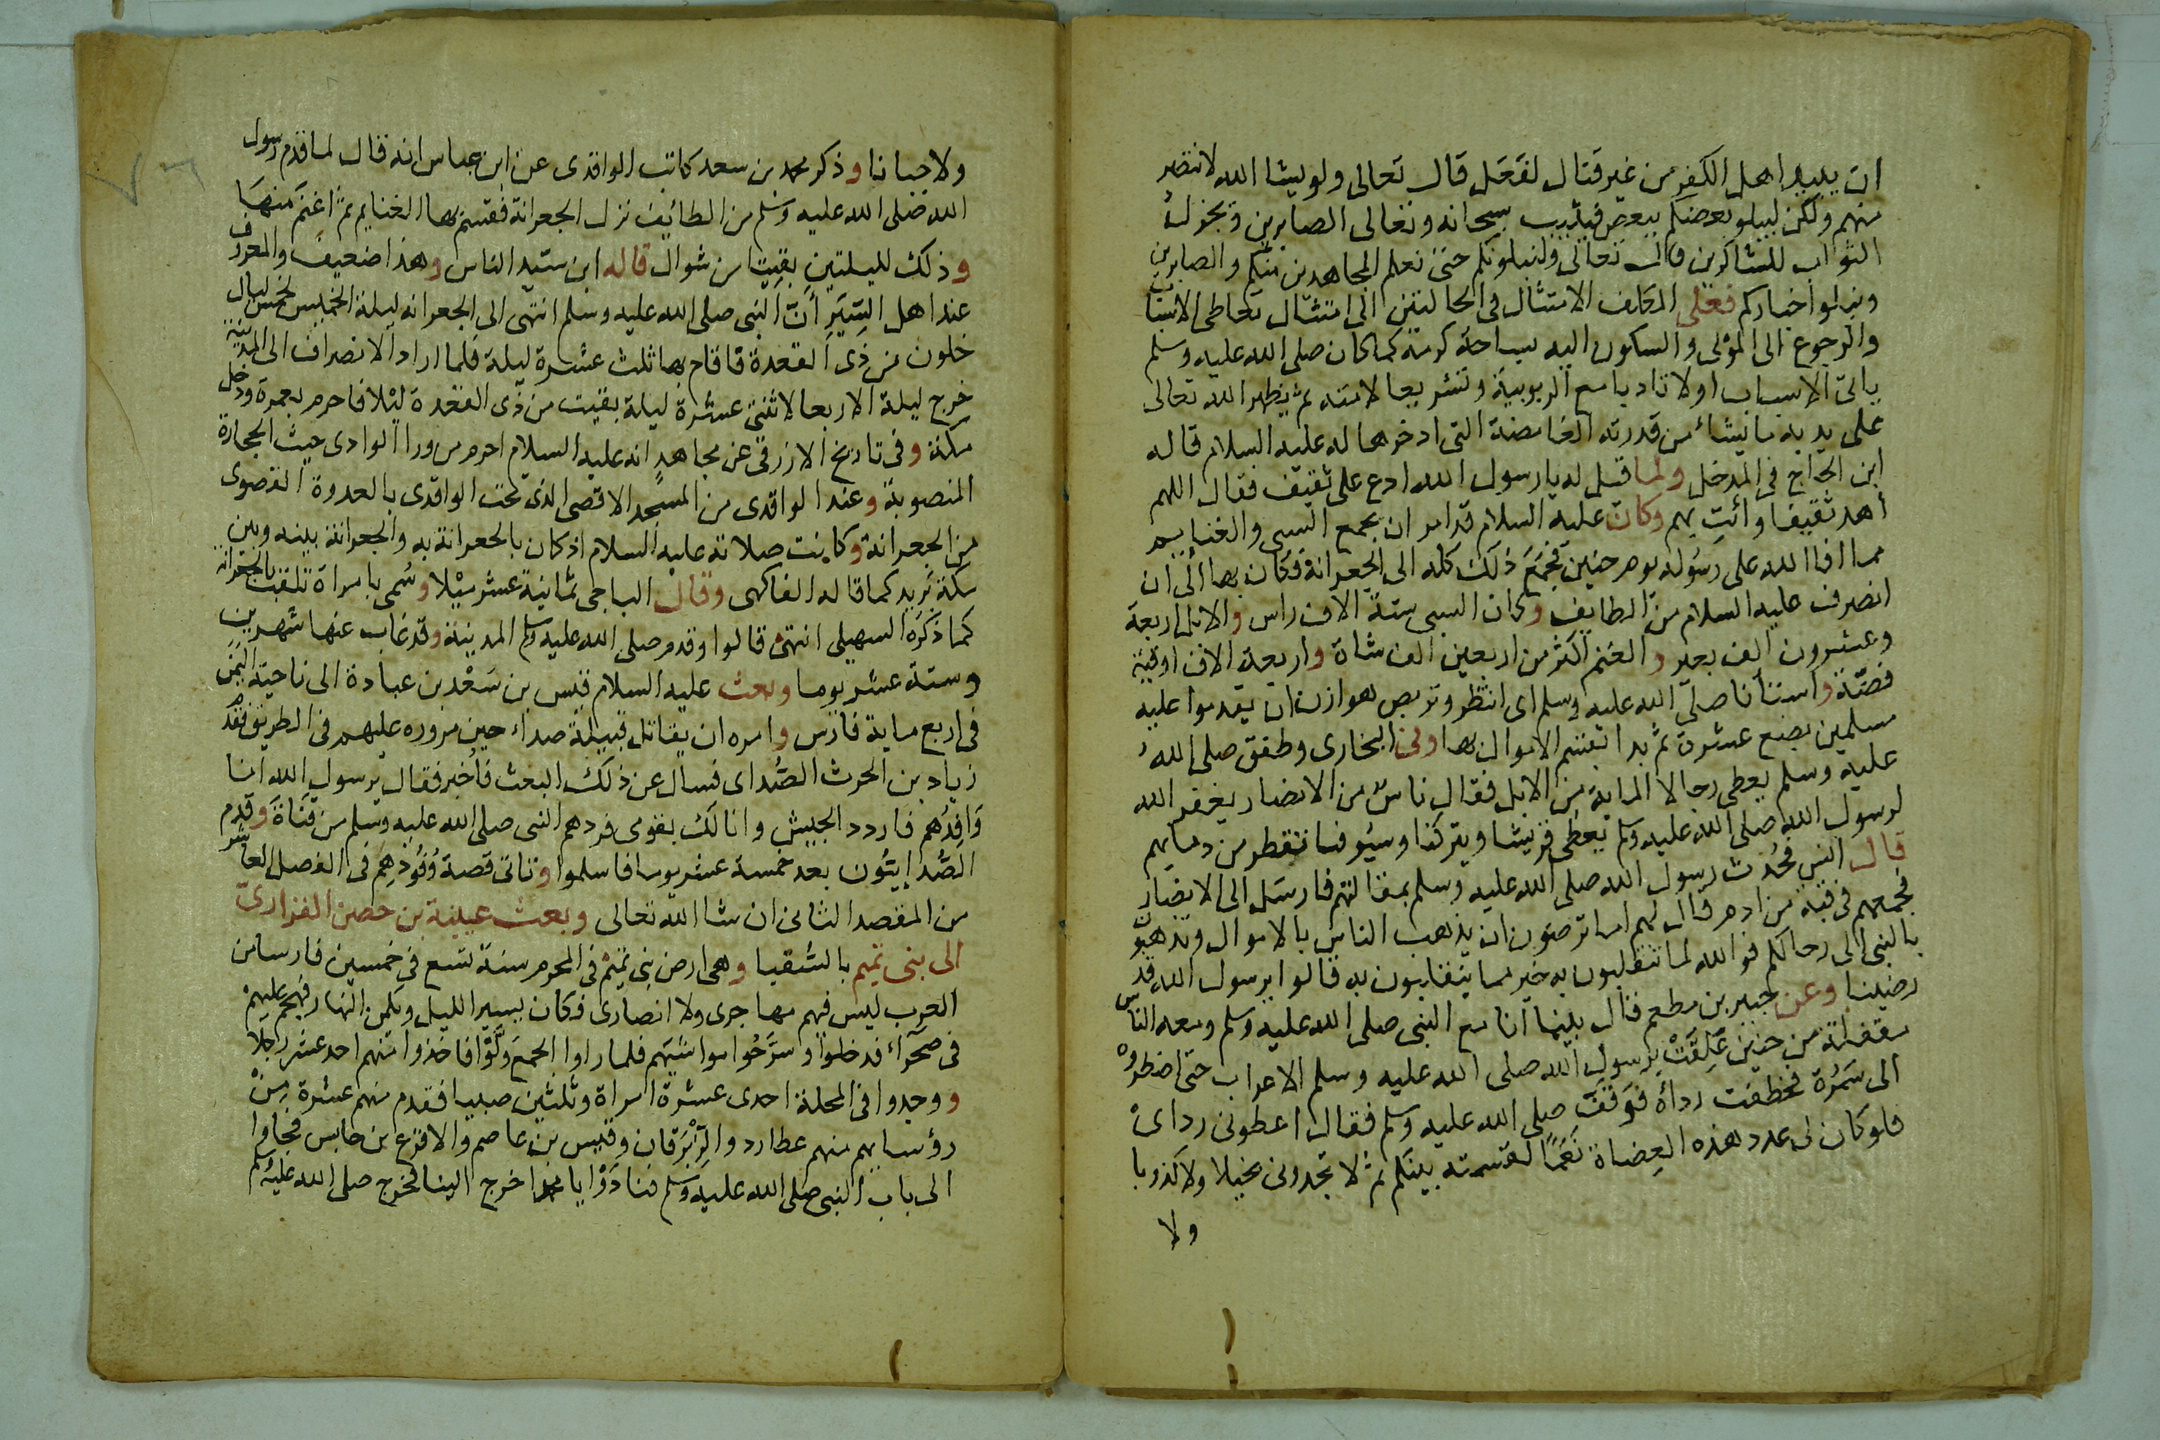 ان يبيد اهل الكفر من غير قتال لفعل قال تعالى ولو يشا الله لانتصر
منهم ولكن ليبلو بعضكم ببعض فيثيب سبحانه وتعالى الصابرين ويجزل
الثواب للشاكرين قال تعالى ولنبلونكم حتى نعلم المجاهدين منكم والصابرين
ونبلوا اخباركم فعلى المكلف الامتثال فى الحالتين اى امتثال تعاطى الاسباب
والرجوع الى المولى والسكون اليه بساحة كرمه كما كان صلى الله عليه وسلم
ياتى الاسباب اولا تادبا مع الربوبية وتشريعا لامته ثم يظهر الله تعالى
على يديه ما يشاء من قدرته الغامضة التى ادخرها له عليه السلام قاله
ابن الحاج فى المدخل ولما قيل له يا رسول الله ادع على ثقيف فقال اللهم
أهد ثقيفا وائت بهم وكان عليه السلام قد امر ان يجمع السبى والغنايم
مما افا الله على رسوله يوم حنين فجمع ذلك كله الى الجعرانة فكان بها الى ان
انصرف عليه السلام من الطايف وكان السبى ستة الاف راس والابل اربعة
وعشرون الف بعير والغنم اكثر من اربعين الف شاة واربعة الاف اوقية
فضة واستانا صلى الله عليه وسلم اى انتظر وتربص بهوازن ان يقدموا عليه
مسلمين بضع عشرة ثم بدا يقسم الاموال بها وفى البخارى وطفق صلى الله
عليه وسلم يعطى رجالا الماية من الابل فقال ناس من الانصار يغفر الله
لرسول الله صلى الله عليه وسلم يعطى قريشا ويتركنا وسيوفنا تقطر من دمايهم
قال انس فحدث رسول الله صلى الله عليه وسلم بمقالتهم فارسل الى الانصار
فجمعهم فى قبة من ادم فقال لهم اما ترضون ان يذهب الناس بالاموال وتذهبون
بالنبى الى رحالكم فوالله لما تنقلبون به خير مما ينقلبون به قالوا يرسول الله قد
رضينا وعن جبير بن مطعم قال بينما انا مع النبى صلى الله عليه وسلم ومعه الناس
مقفلة من حنين علقت برسول الله صلى الله عليه وسلم الاعراب حتى اضطروه
الى سمرة فخطفت رداه فوقف صلى الله عليه وسلم فقال اعطونى رداى
فلو كان لى عدد هذه العضاة نعما لقسمته بينكم ثم لا تجدونى بخيلا ولا كذوبا
ولا
ولا جبانا وذكر محمد بن سعد كاتب الواقدى عن ابن عباس انه قال لما قدم رسول
الله صلى الله عليه وسلم من الطايف نزل الجعرانة فقسم بها الغنايم ثم اعتمر منها
وذلك لليلتين بقيتا من شوال قاله ابن سيد الناس وهذا ضعيف والمعروف
عند اهل السير أن النبى صلى الله عليه وسلم انتهى الى الجعرانه ليلة الخميس لخمس ليال
خلون من ذى القعدة فاقام بها ثلث عشرة ليلة فلما اراد الانصراف الى المدينة
خرج ليلة الاربعا لاثنتى عشرة ليلة بقيت من ذى القعدة ليلا فاحرم بعمرة ودخل
مكة وفى تاريخ الازرقى عن مجاهد انه عليه السلام احرم من ورا الوادى حيث الحجارة
المنصوبة وعند الواقدى من المسجد الاقصى الذى تحت الوادى بالعدوة القصوى
من الجعرانة وكانت صلاته عليه السلام اذ كان بالجعرانة به والجعرانة بينه وبين
مكة بريد كما قاله الفاكهى وقال الباجى ثمانية عشر ميلا وسمى بامراة تلقب بالجعرانة
كما ذكره السهيلى انتهى قالوا وقدم صلى الله عليه وسلم المدينة وقد غاب عنها شهرين
وستة عشر يوما وبعث عليه السلام قيس بن سعد بن عبادة الى ناحية اليمن
فى اربع ماية فارس وامره ان يقاتل قبيلة صداء حين مروره عليهم فى الطريق فقدم
زياد بن الحرث الصداى فسال عن ذلك البعث فأخبر فقال يرسول الله انا
وافدهم فاردد الجيش وانا لك بقومى فردهم النبى صلى الله عليه وسلم من قناة وقدم
الصدايون بعد خمسة عشر يوما فاسلموا وتاتى قصة وفودهم فى الفصل العاشر
من المقصد الثانى ان شا الله تعالى وبعث عيينة بن حصن الفزارى
الى بنى تميم بالسقيا وهى ارض بنى تميم فى المحرم سنة تسع فى خمسين فارسا من
العرب ليس فيهم مهاجرى ولا انصارى فكان يسير الليل ويكمن النهار فهجم عليهم
فى صحراء فدخلوا وسرحوا مواشيهم فلما راوا الجمع ولوا فاخذوا منهم احد عشر رجلا
ووجدوا فى المحلة احدى عشرة امراة وثلثين صبيا فقدم منهم عشرة من
رؤسايهم منهم عطارد والزبرقان وقيس بن عاصم والاقرع بن حابس فجاوا
الى باب النبى صلى الله عليه وسلم فنادوا يا محمد اخرج الينا فخرج صلى الله عليه وسلم